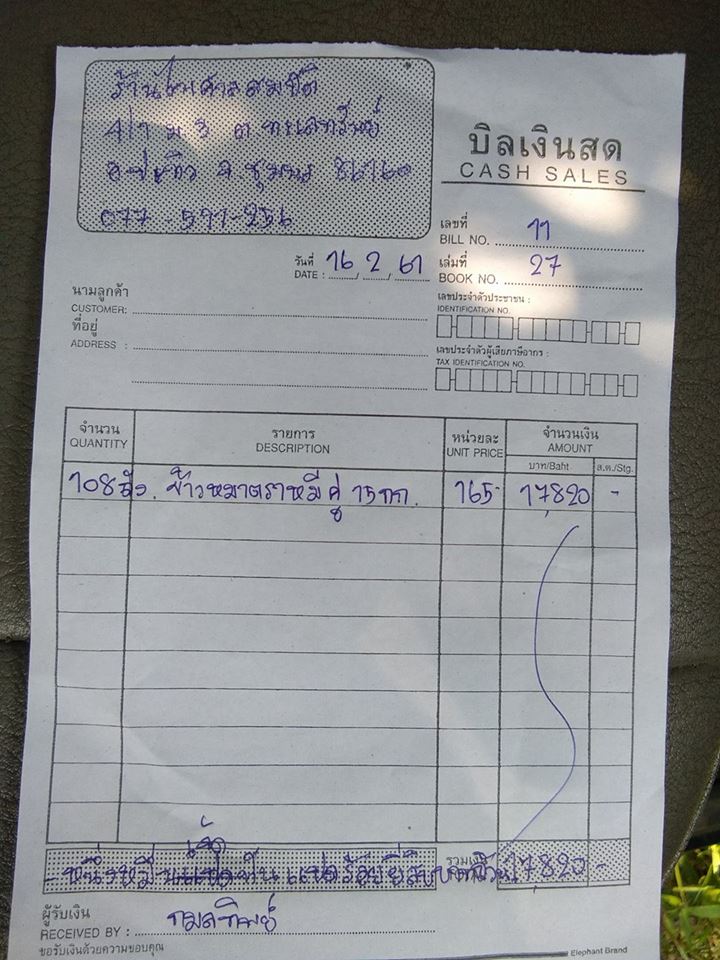 4/1 ม.3 ต.ทะเลทรัพย์
อ.ปะทิว จ.ชุมพร 86160
077-591-256
บิลเงินสด
CASH SALES
เลขที่
BILL NO. 11
วันที่
DATE : 16 / 2 / 61
เล่มที่
BOOK NO. 27
นามลูกค้า
CUSTOMER:
ที่อยู่
ADDRESS :
เลขประจำตัวประชาชน :
IDENTIFICATION NO.
เลขประจำตัวผู้เสียภาษีอากร :
TAX IDENTIFICATION NO.
จำนวน รายการ หน่วยละ จำนวนเงิน
QUANTITY DESCRIPTION UNIT PRICE AMOUNT
บาท/Baht ส.ต./Stg.
108 ข้าวหมาตราหมีคู่ 15 กก. 165- 17,820 -
เจ็ด
-หนึ่งหมื่น พัน แปดร้อยยี่สิบบาทถ้วน 17,820 -
ผู้รับเงิน
RECEIVED BY : กมลทิพย์
ขอรับเงินด้วยความขอบคุณ
Elephant Brand